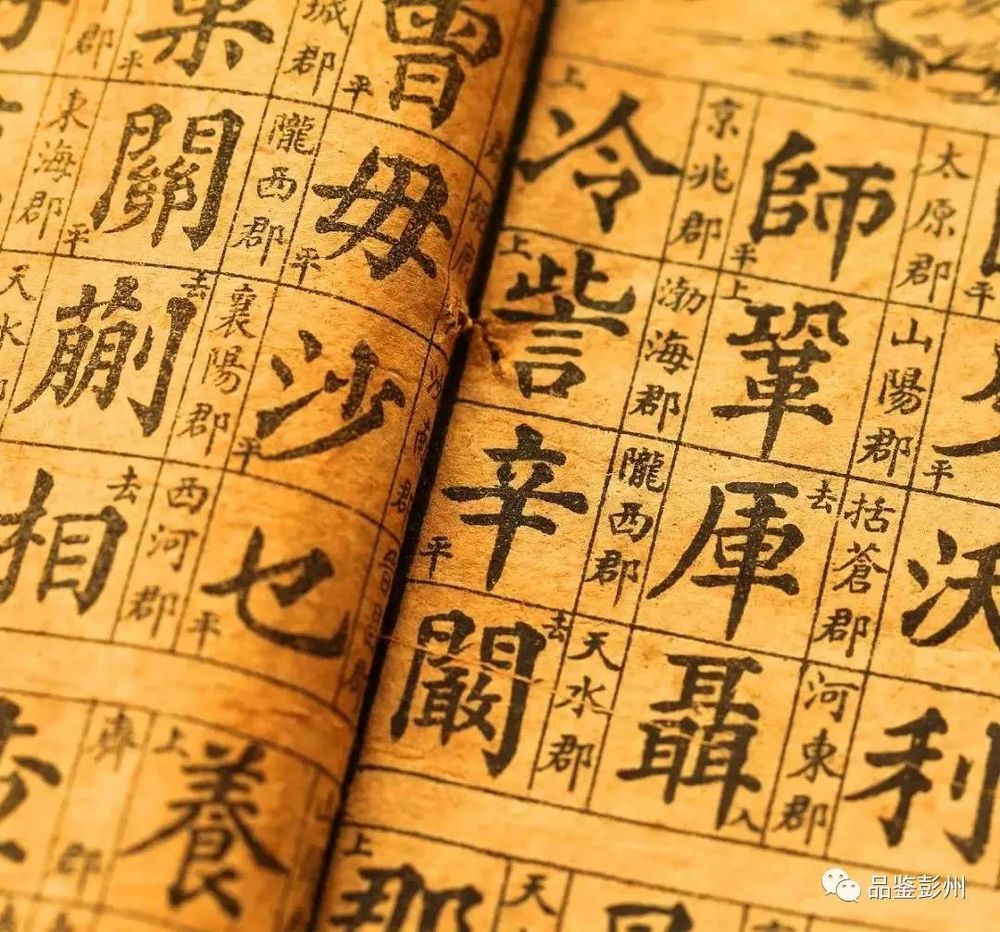 沃
利
太原郡
平
師
山陽郡
上
鞏
平
括蒼郡
去
厙
河東郡
聶
入
京兆郡
上
冷
平
渤海郡
上
訾
隴西郡
辛
平
天水郡
去
闞
天
上
那
曾
平
毋
平
沙
平
乜
平
上
養
城郡
巢
平
隴西郡
關
平
襄陽郡
去
蒯
西河郡
去
相
齊郡
郡
東海郡
天水
品鉴彭州